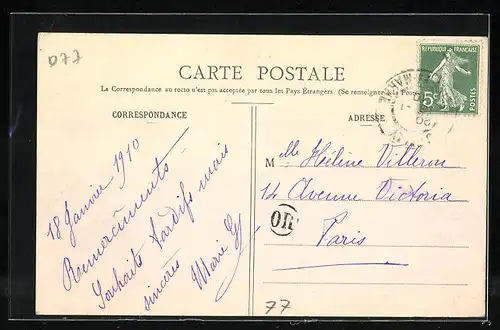 D77
CARTE POSTALE
La Correspondance au recto n'est pas acceptée par tous les Pays Étrangers. (Se renseigner à la Poste)
CORRESPONDANCE
ADRESSE
RÉPUBLIQUE FRANÇAISE
5c
POSTES
18 Janvier 1910
Remerciments
Souhaits tardifs mais
sincères
Marie
Melle Hélène Villeron
14 Avenue Victoria
Paris
OR
77